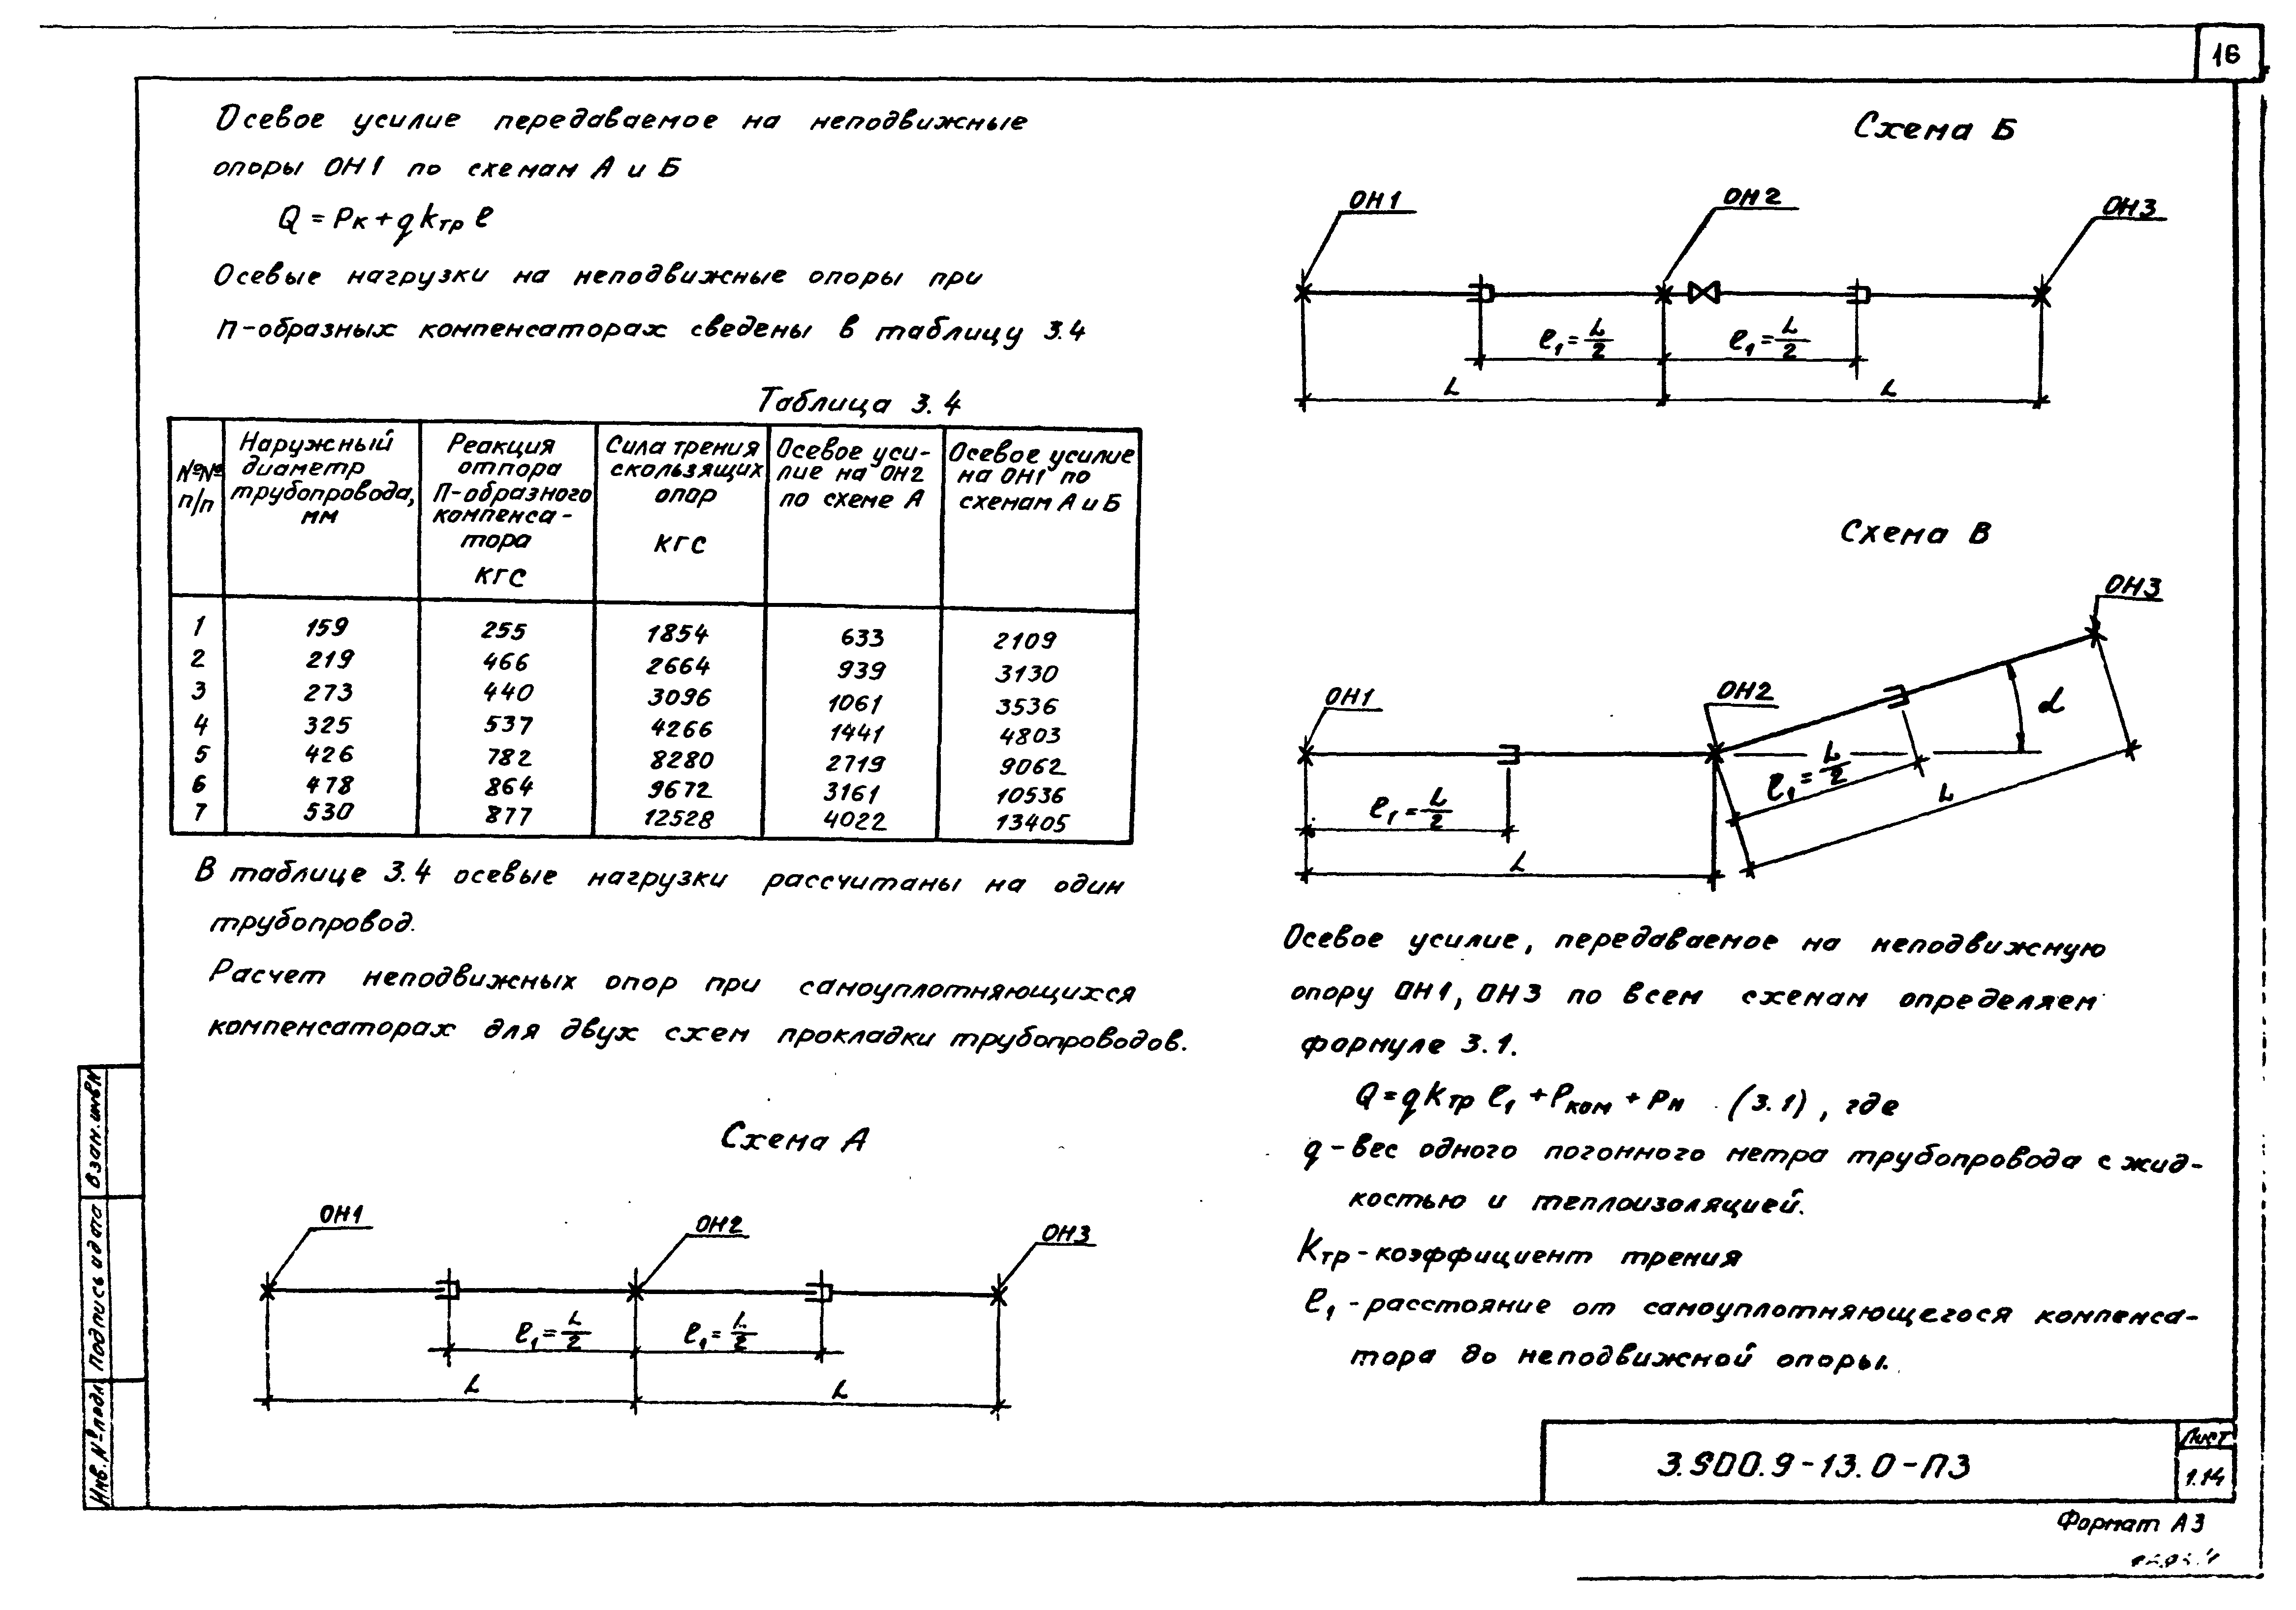 16
Осевое усилие передаваемое на неподвижные
опоры ОН1 по схемам А и Б
Q = Рк + q kтр ℓ
Осевые нагрузки на неподвижные опоры при
п-образных компенсаторах сведены в таблицу 3.4
Таблица 3.4
№№ п/п
Наружный диаметр трубопровода, мм
Реакция отпора П-образного компенса-тора кгс
Сила трения скользящих опор кгс
Осевое уси-лие на ОН2 по схеме А
Осевое усилие на ОН1 по схемам А и Б
1 159 255 1854 633 2109
2 219 466 2664 939 3130
3 273 440 3096 1061 3536
4 325 537 4266 1441 4803
5 426 782 8280 2719 9062
6 478 864 9672 3161 10536
7 530 877 12528 4022 13405
В таблице 3.4 осевые нагрузки рассчитаны на один
трубопровод.
Расчет неподвижных опор при самоуплотняющихся
компенсаторах для двух схем прокладки трубопроводов.
Схема А
ОН1 ОН2 ОН3
ℓ1 = L/2 ℓ1 = L/2
L L
Схема Б
ОН1 ОН2 ОН3
ℓ1 = L/2 ℓ1 = L/2
L L
Схема В
ОН3
ОН1 ОН2 α
ℓ1 = L/2 ℓ1 = L/2
L L
Осевое усилие, передаваемое на неподвижную
опору ОН1, ОН3 по всем схемам определяем
формуле 3.1.
Q = q Kтр ℓ1 + Рком + Рн (3.1), где
q - вес одного погонного метра трубопровода с жид-
костью и теплоизоляцией.
Kтр - коэффициент трения
ℓ1 - расстояние от самоуплотняющегося компенса-
тора до неподвижной опоры.
Взам.инв№
Подпись и дата
Инв.№ подл
3.SD0.9-13.0-ПЗ
Лист
1.14
Формат А3